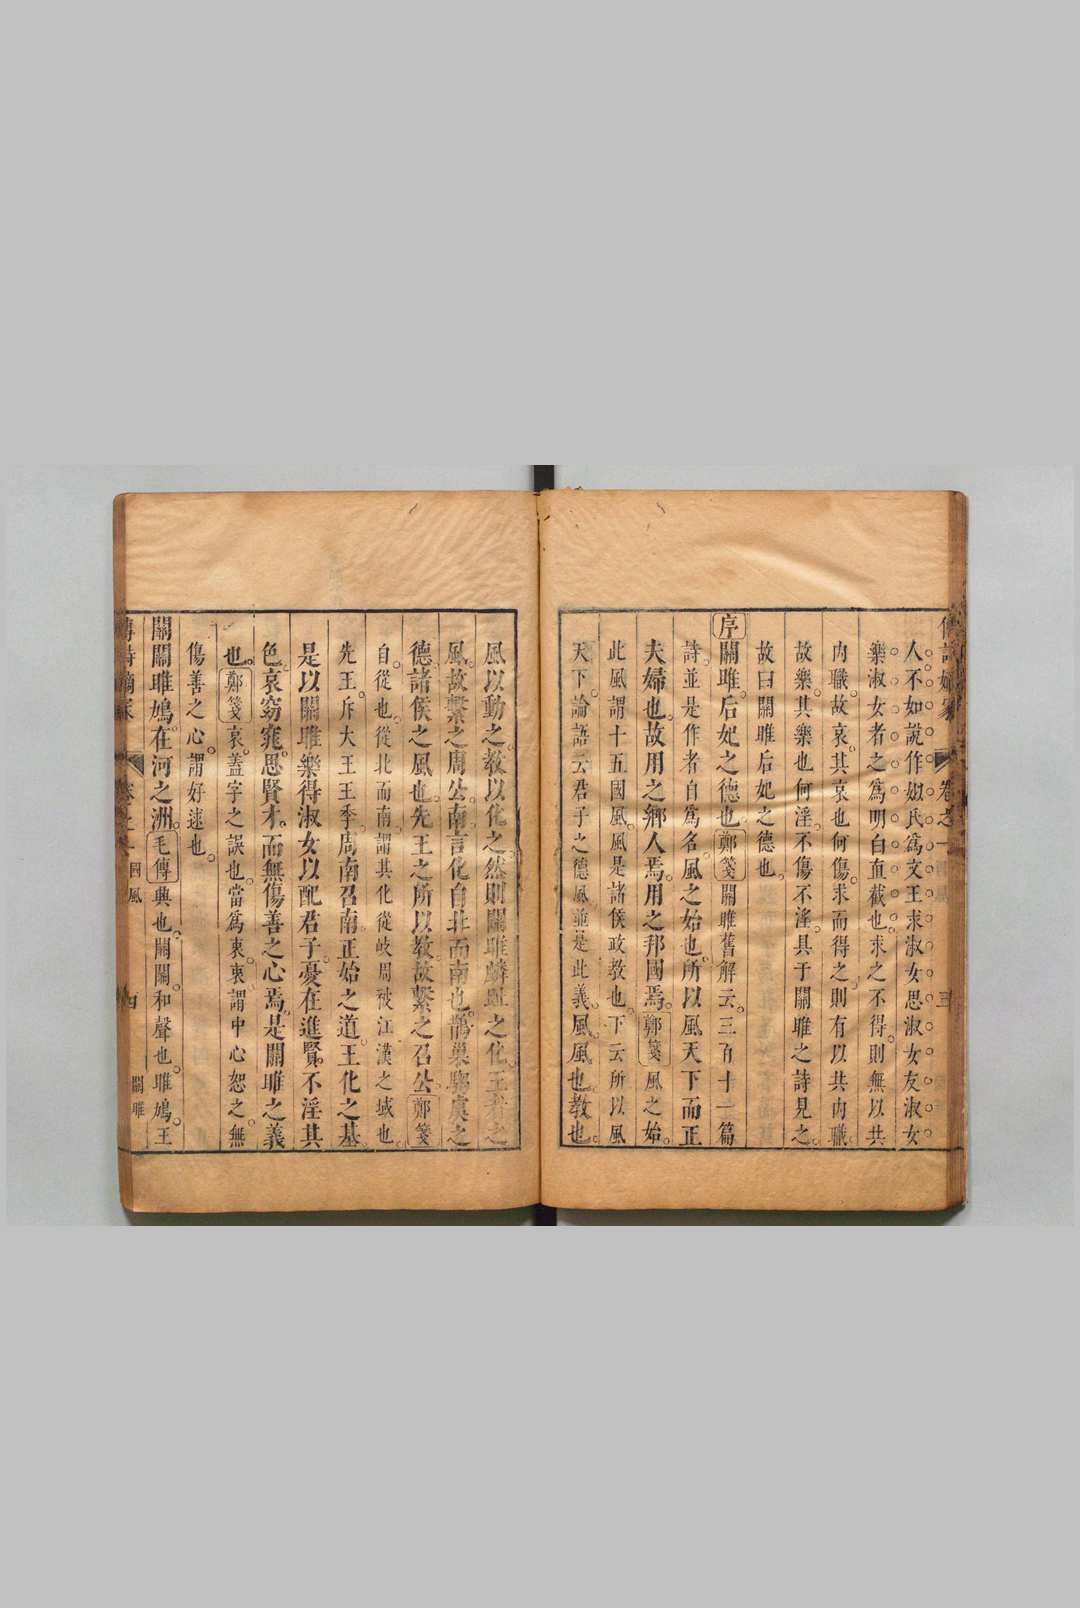 人不如說作姒氏爲文王求淑女思淑女友淑女
樂淑女者之爲明白直截也求之不得則無以共
內職故哀其哀也何傷求而得之則有以共內職
故樂其樂也何淫不傷不淫具于關雎之詩見之
故曰關雎后妃之德也
序關雎后妃之德也鄭箋關雎舊解云三百十一篇
詩並是作者自爲名風之始也所以風天下而正
夫婦也故用之鄉人焉用之邦國焉鄭箋風之始
此風謂十五國風風是諸侯政教也下云所以風
天下論語云君子之德風並是此義風風也教也
風以動之教以化之然則關雎麟趾之化王者之
風故繫之周公南言化自北而南也鵲巢騶虞之
德諸侯之風也先王之所以教故繫之召公鄭箋
自從也從北而南謂其化從岐周被江漢之域也
先王斥大王王季周南召南正始之道王化之基
是以關雎樂得淑女以配君子憂在進賢不淫其
色哀窈窕思賢才而無傷善之心焉是關雎之義
也鄭箋哀蓋字之誤也當爲衷衷謂中心恕之無
傷善之心謂好逑也
關關雎鳩在河之洲毛傳興也關關和聲也雎鳩王
卷之一 國風 四 關雎